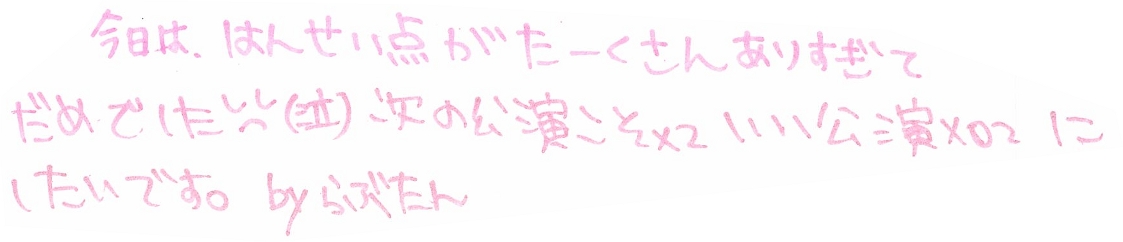 今日は、はんせい点がたーくさんありすぎて
だめでした(泣)次の公演こそ×2いい公演×02に
したいです。byらぶたん